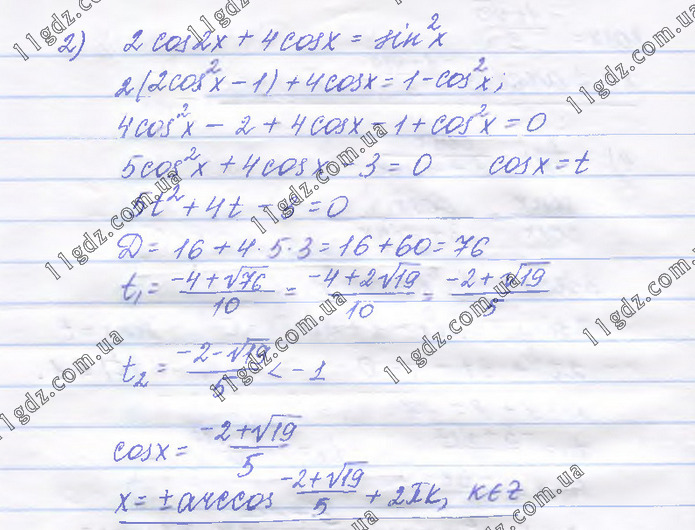 2) 2 cos2x + 4cosx = sin²x
2(2cos²x - 1) + 4cosx = 1 - cos²x;
4cos²x - 2 + 4cosx - 1 + cos²x = 0
5cos²x + 4cosx - 3 = 0 cosx = t
5t² + 4t - 3 = 0
D = 16 + 4·5·3 = 16 + 60 = 76
t₁ = (-4+√76)/10 = (-4+2√19)/10 = (-2+√19)/5
t₂ = (-2-√19)/5 < -1
cosx = (-2+√19)/5
x = ± arccos (-2+√19)/5 + 2πk, k∈Z
11gdz.com.ua
11gdz.com.ua
11gdz.com.ua
11gdz.com.ua
11gdz.com.ua
11gdz.com.ua
11gdz.com.ua
11gdz.com.ua
11gdz.com.ua